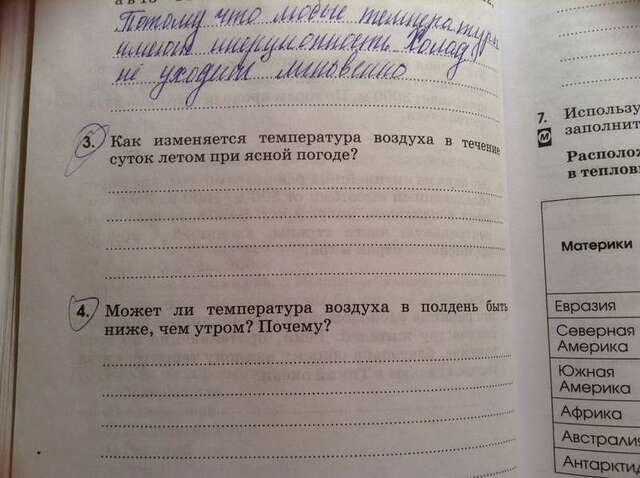 Потому что любые температуры
имеют инерционность. Холод
не уходит мгновенно
3. Как изменяется температура воздуха в течение
суток летом при ясной погоде?
4. Может ли температура воздуха в полдень быть
ниже, чем утром? Почему?
7. Использу
заполнит
М
Располож
в теплов
Материки
Евразия
Северная
Америка
Южная
Америка
Африка
Австралия
Антарктид